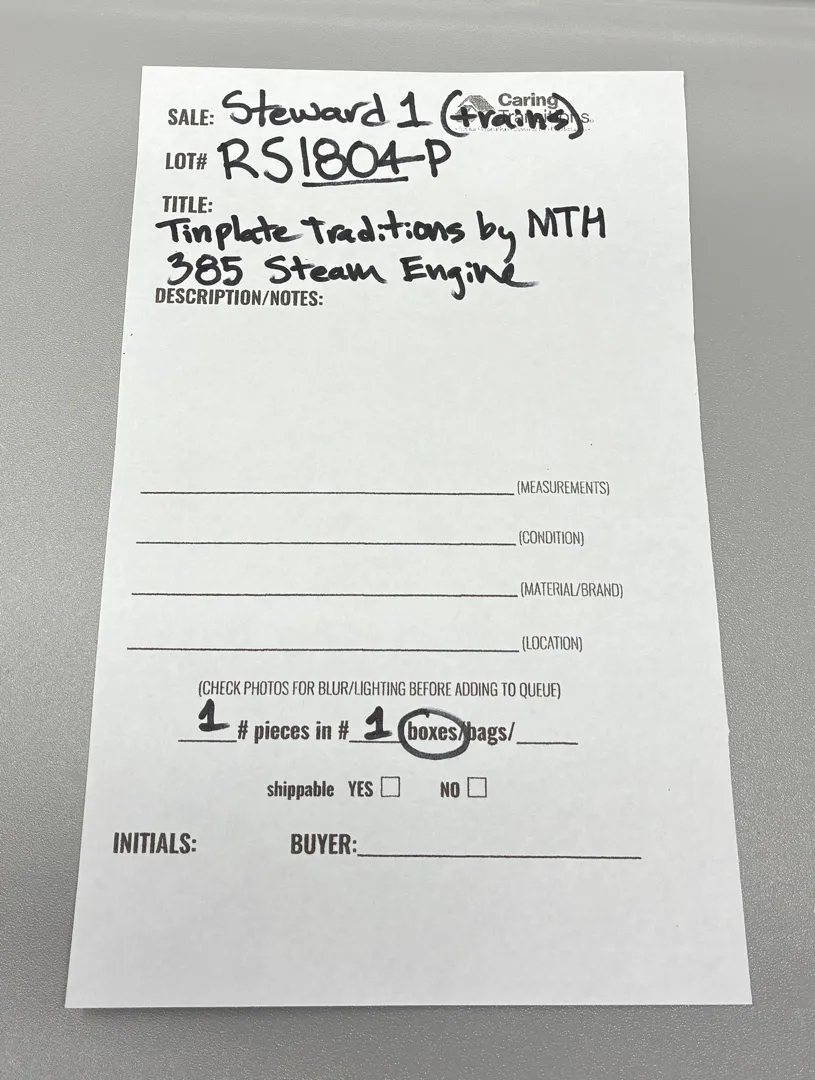 Caring
Transitions®
SALE: Steward 1 (trains)
LOT# RS1804-P
TITLE:
Tinplate Traditions by MTH
385 Steam Engine
DESCRIPTION/NOTES:
(MEASUREMENTS)
(CONDITION)
(MATERIAL/BRAND)
(LOCATION)
(CHECK PHOTOS FOR BLUR/LIGHTING BEFORE ADDING TO QUEUE)
1 # pieces in # 1 boxes/bags/
shippable YES NO
INITIALS: BUYER: